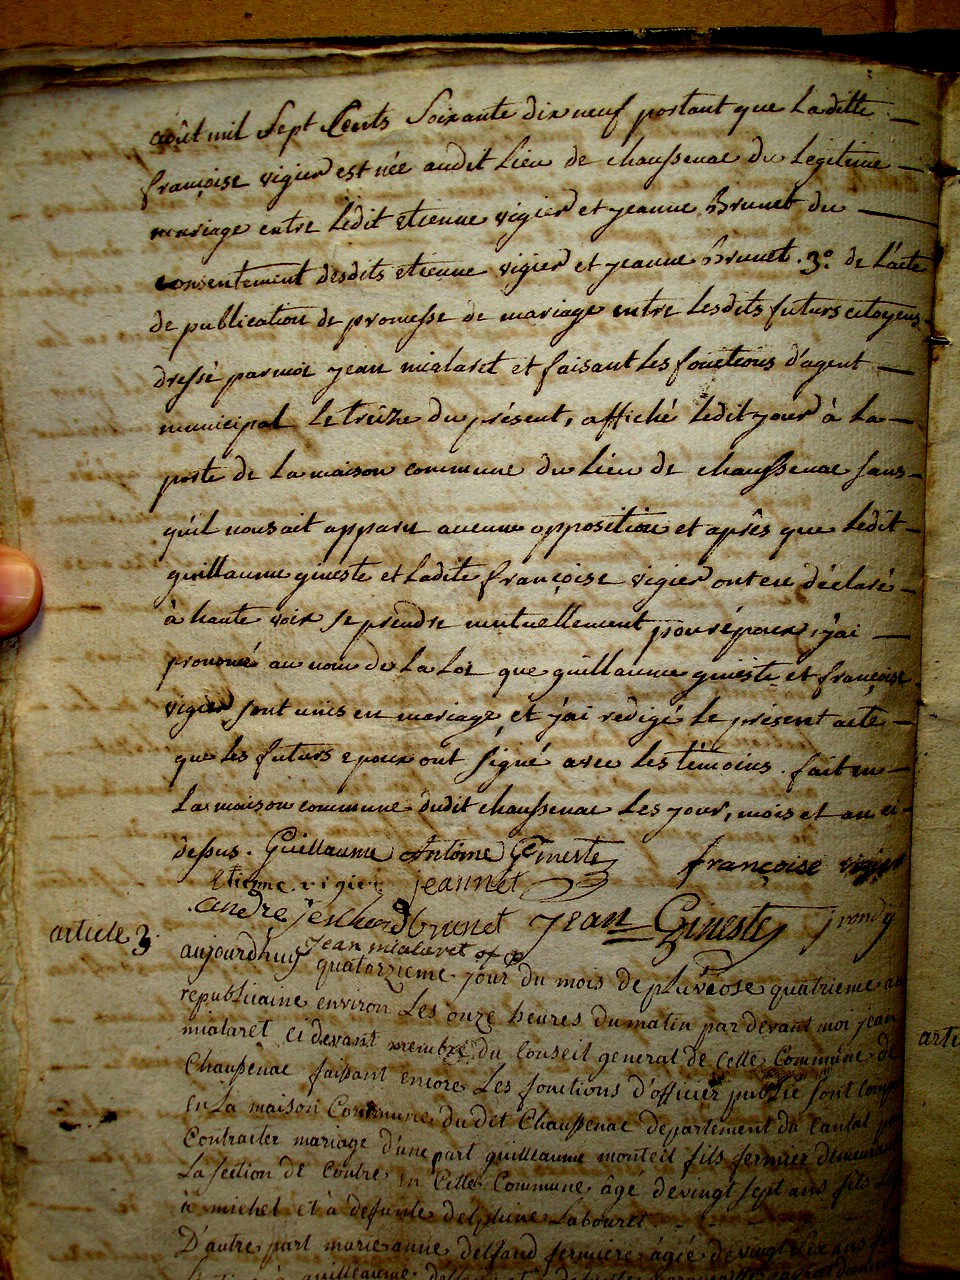 août mil Sept Cents Soixante dix neuf portant que Laditte
françoise vigier est née audit Lieu de chaussenac du Legitime
mariage entre Ledit etienne vigier et jeanne Brunet du
consentement desdits etienne vigier et jeanne Brunet. 3º. de L'acte
de publication de promesse de mariage entre Lesdits futurs citoyens
dressé par moi jean mialaret et faisant Les fonctions d'agent
municipal Le treize du présent, affiché Ledit jour à La
porte de La maison commune du Lieu de chaussenac sans
qu'il nous ait apparu aucune opposition et après que Ledit
guillaume gineste et Ladite françoise vigier ont eu déclaré
à haute voix se prendre mutuellement pour époux, j'ai
prononcé au nom de La Loi que guillaume gineste et françoise
vigier sont unis en mariage et j'ai redigé Le présent acte
que Les futurs epoux ont signé avec Les témoins. fait en
La maison commune dudit chaussenac Les jour, mois et an ci
dessus. Guillaume Antoine Gineste françoise vigier
Etienne vigier jeannet
andre brunet jean Gineste
jean mialaret
article 3.
aujourdhuy quatorzieme jour du mois de pluviose quatrieme an
republicaine environ Les onze heures du matin par devant moi jean
mialaret ci devant membre du Conseil general de Cette Commune de
Chaussenac faisant encore Les fonctions d'officier public sont
en La maison Commune du dit Chaussenac departement du Cantal
Contracter mariage d'une part guilleaume monteil fils fermier demeurant
La section de Contre en Cette Commune âgé de vingt sept ans fils
à michel et à defunte delphine Labouret
D'autre part marie anne delfand fermiere âgée de vingt six ans
guilleaume
arti